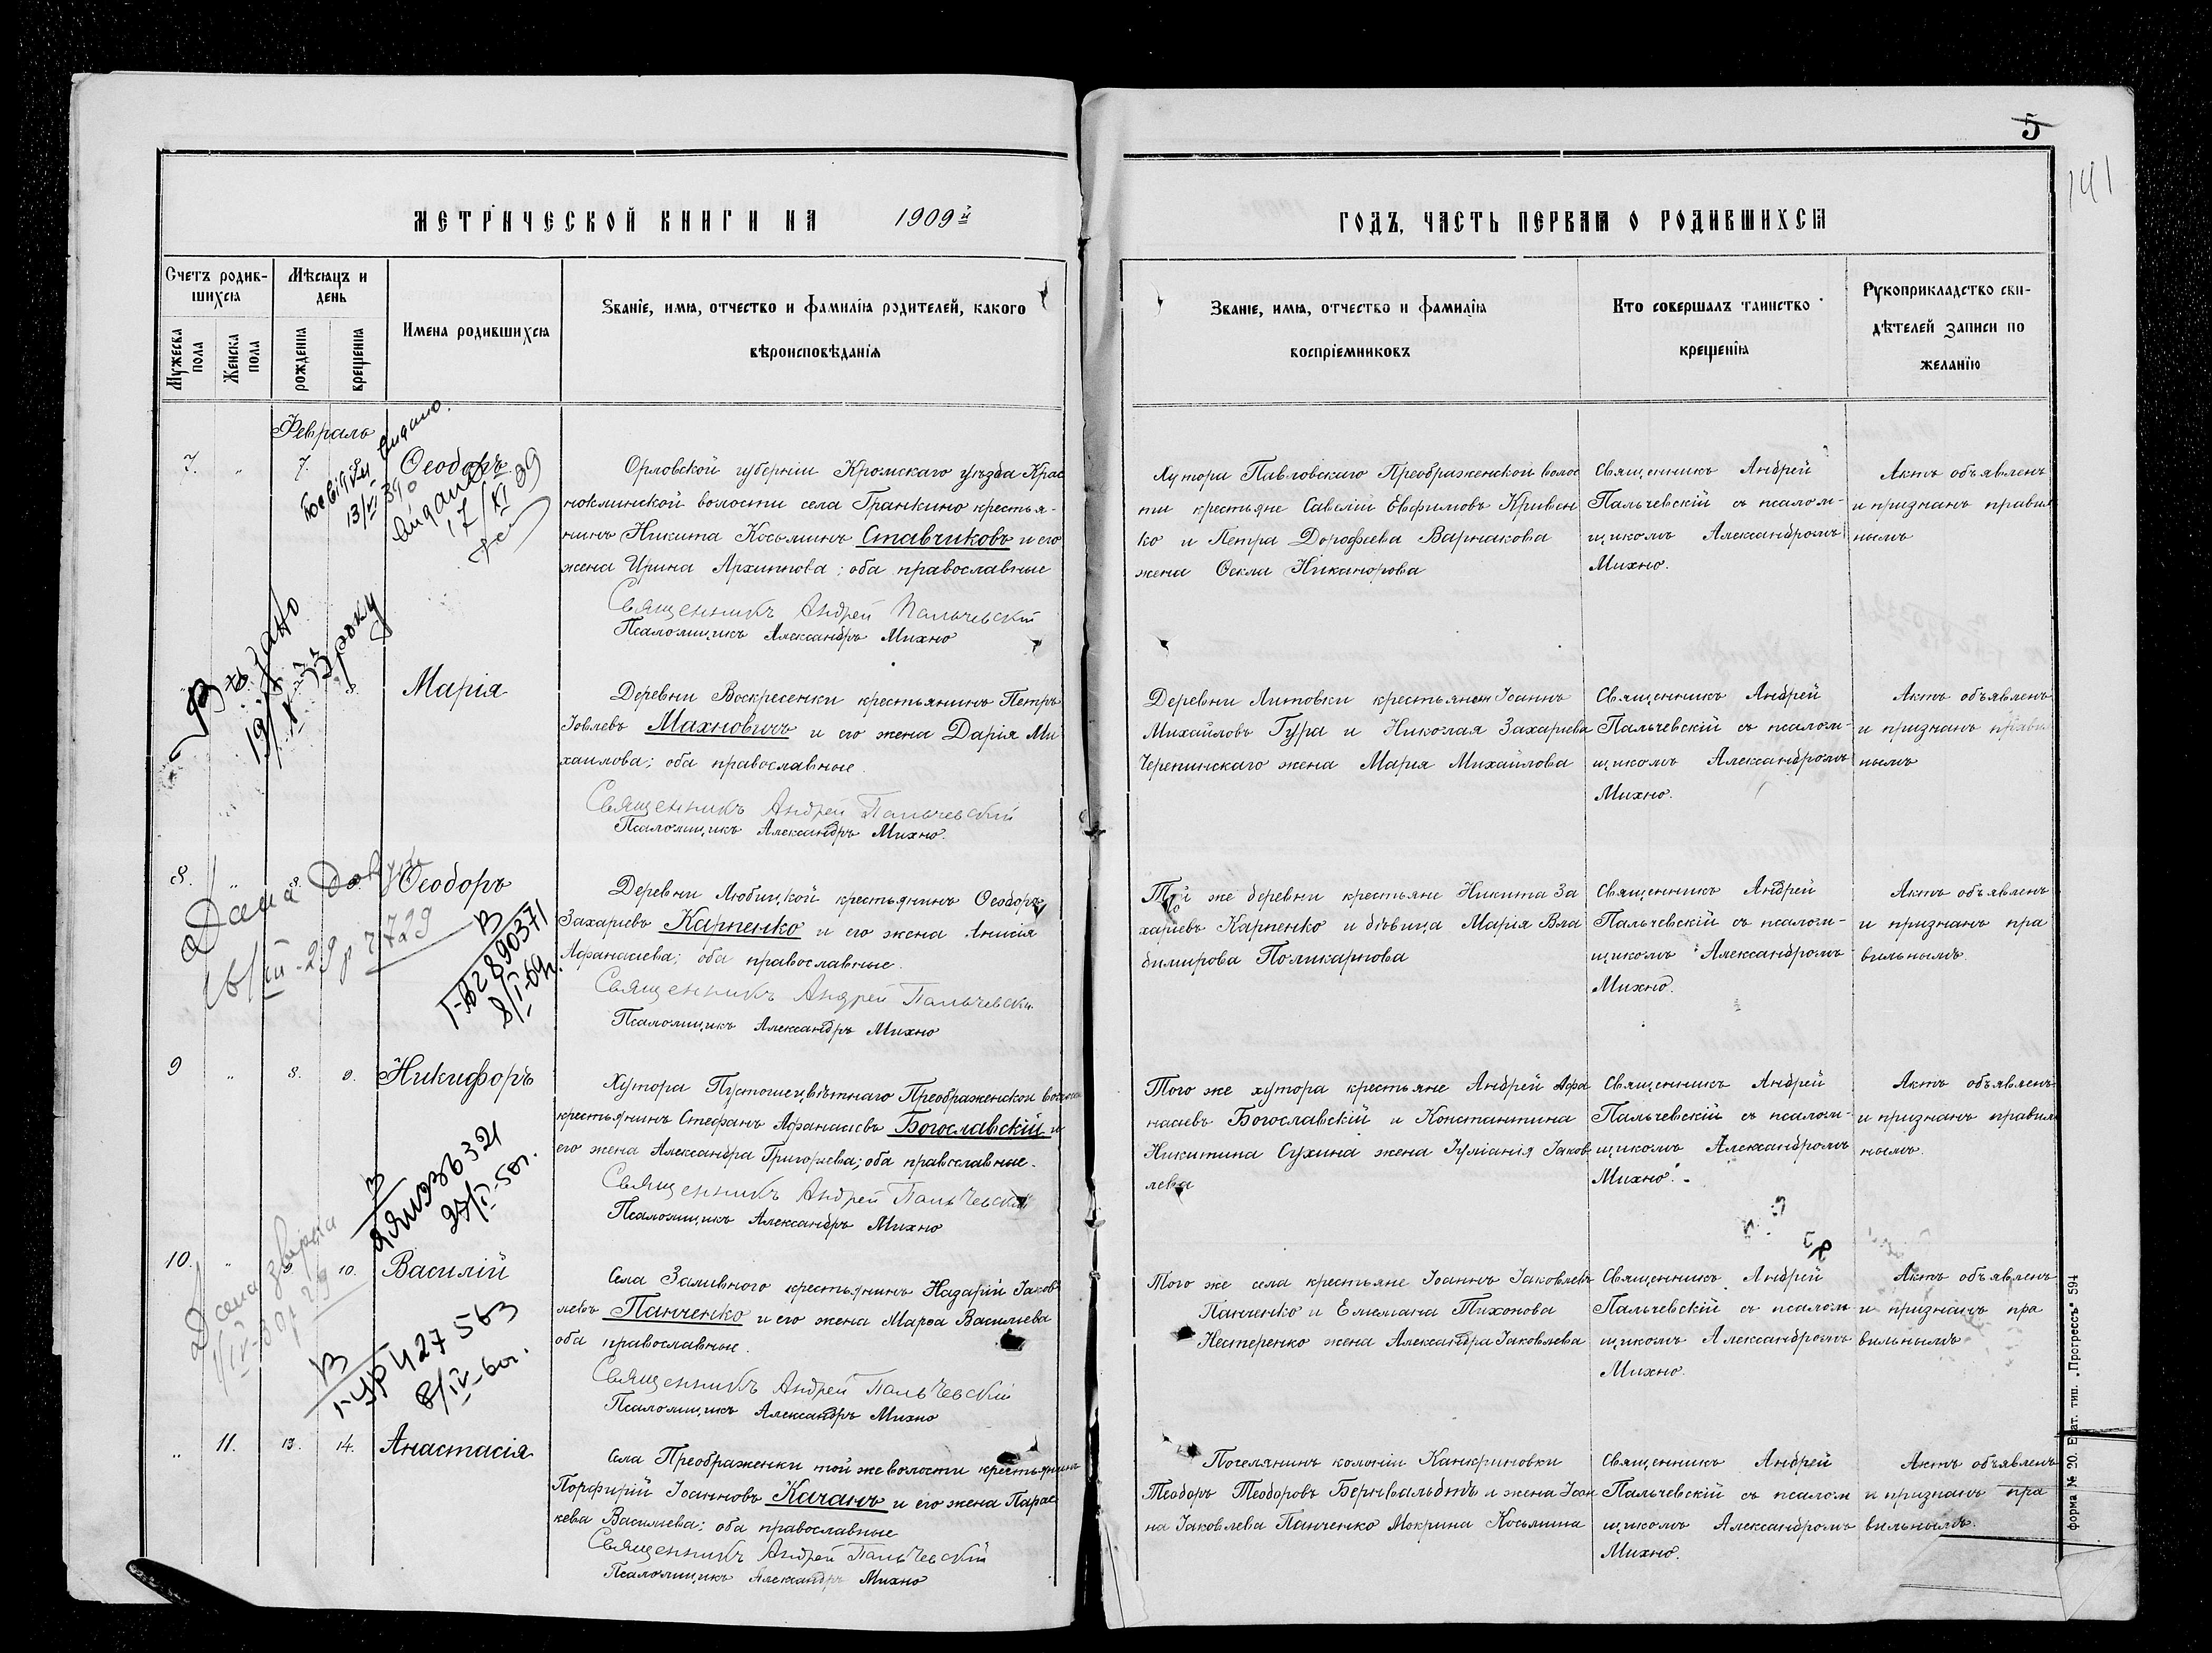 5
141
МЕТРИЧЕСКОЙ КНИГИ НА 1909й
ГОДЪ, ЧАСТЬ ПЕРВАЯ О РОДИВШИХСЯ
Счетъ родив-
шихся
Мужеска пола
Женска пола
Мѣсяцъ и
день
рожденія
крещенія
Имена родившихся
Званіе, имя, отчество и фамилія родителей, какого
вѣроисповѣданія
Званіе, имя, отчество и фамилія
воспріемниковъ
Кто совершалъ таинство
крещенія
Рукоприкладство сви-
дѣтелей записи по
желанію
Февраль
7. " 7. Ѳеодоръ
13/VI 39
17/XI 39
Орловской губерніи Кромскаго уѣзда Крас
ноклинской волости села Гранкино крестья-
нинъ Никита Косьминъ Ставчиковъ и его
жена Ирина Архиппова; оба православные
Священникъ Андрей Пальчевскій
Псаломщикъ Александръ Михно
Хутора Павловскаго Преображенской волос
ти крестьяне Савелій Евфимовъ Кривен
ко и Петра Дорофеева Варнакова
жена Ѳекла Никанорова
Священникъ Андрей
Пальчевскій съ псалом-
щикомъ Александромъ
Михно.
Актъ объявленъ
и признанъ правил
нымъ
Марія
Деревни Воскресенки крестьянинъ Петръ
Іовлевъ Махновичъ и его жена Дарія Ми
хаилова; оба православные
Священникъ Андрей Пальчевскій
Псаломщикъ Александръ Михно.
Деревни Литовки крестьянен Іоаннъ
Михайловъ Гура и Николая Захариева
Черепинскаго жена Мария Михаилова
Священникъ Андрей
Пальчевскій съ псалом-
щикомъ Александромъ
Михно.
Актъ объявленъ
и признанъ правил
нымъ
8. " 8. Ѳеодоръ
Дана
16/III-29 р 2729
В
I-ЯБ 2890371
8/I-69г.
Деревни Любицкой крестьянинъ Ѳеодоръ
Захариевъ Карпенко и его жена Анисія
Афанасиева; оба православные.
Священникъ Андрей Пальчевскій
Псаломщикъ Александръ Михно
Той же деревни крестьяне Никита За
хариевъ Карпенко и дѣвица Марія Вла
димирова Поликарпова
Священникъ Андрей
Пальчевскій съ псалом-
щикомъ Александромъ
Михно.
Актъ объявленъ
и признанъ пра
вильнымъ.
9 " 8. 9. Никифоръ
Хутора Пустошецвѣтнаго Преображенской волости
крестьянинъ Стефанъ Афанасиевъ Богославскій и
его жена Александра Григориева; оба православные.
Священникъ Андрей Пальчевскій
Псаломщикъ Александръ Михно
Того же хутора крестьяне Андрей Афа
насиевъ Богославскій и Константина
Никитина Сухина жена Іуліанія Іаков
лева
Священникъ Андрей
Пальчевскій съ псалом-
щикомъ Александромъ
Михно.
Актъ объявленъ
и признанъ правил
нымъ.
10. " 10. Василій
В
I-УР 427563
8/IV-60г.
Села Заливного крестьянинъ Назарій Іаков
левъ Панченко и его жена Марѳа Василиева
оба православные.
Священникъ Андрей Пальчевскій
Псаломщикъ Александръ Михно
Того же села крестьяне Іоаннъ Іаковлевъ
Панченко и Емелиана Тихонова
Нестеренко жена Александра Іаковлева
Священникъ Андрей
Пальчевскій съ псалом
щикомъ Александромъ
Михно.
Актъ объявленъ
и признанъ пра
вильнымъ
" 11. 13. 14. Анастасія
Села Преображенки той же волости крестьянинъ
Порфирій Іоанновъ Качанъ и его жена Парас
кева Василиева; оба православные
Священникъ Андрей Пальчевскій
Псаломщикъ Александръ Михно
Поселянинъ колоніи Канкриновки
Теодоръ Теодоровъ Бернвальдтъ и жена Іоан
на Іаковлева Панченко Мокрина Косьмина
Священникъ Андрей
Пальчевскій съ псалом
щикомъ Александромъ
Михно.
Актъ объявленъ
и признанъ пра
вильнымъ.
форма № 20. Екат. тип. „Прогрессъ" 594